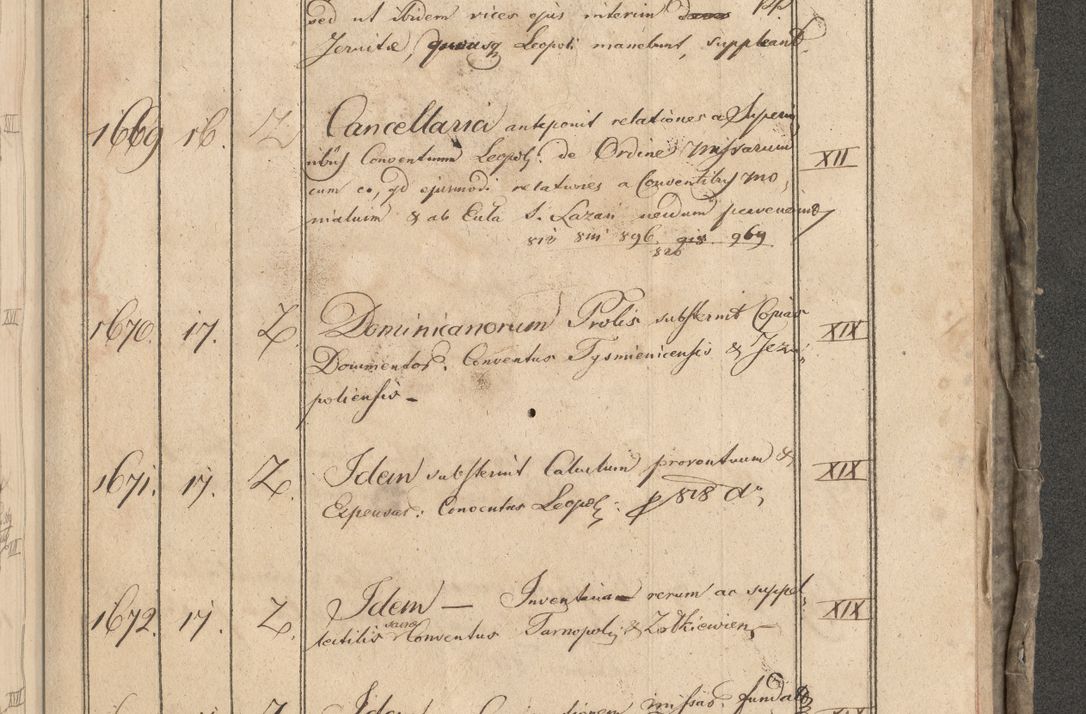 sed ut ibidem vices ejus interim PP
Jesuitæ, Leopoli manebunt, suppleant.
1669 16. Z Cancellaria anteponit relationes a Superio
ribus Conventuum Leopol: de Ordine Missarum XII
cum eo, qd ejusmodi relationes a Conventibus Mo,
nialum & ab Eccla S. Lazari necdum pervenerint
812 811 896. 918. 969
826
1670. 17. Z. Dominicanorum Prolis substernit Copias XIX
Documentor. Conventus Tysmienicensis & Jezu,
poliensis
1671. 17. Z. Idem substernit Calculum proventuum & XIX
Expensar: Conventus Leopol: p 818 do,
1672. 17. Z. Idem — Inventaria rerum ac suppel XIX
lectilis sacræ Conventus Tarnopol, & Zołkiewien,
Idem missar. fundat